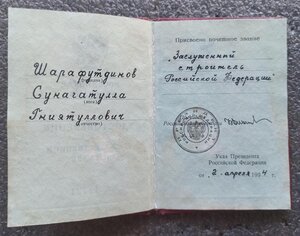 Шарафутдинов
Сунагатулла
(имя)
Гниятуллович
(отчество)
Присвоено почетное звание
„Заслуженный
строитель
Российской Федерации"
Указ Президента
Российской Федерации
от „2" апреля 1994 г.